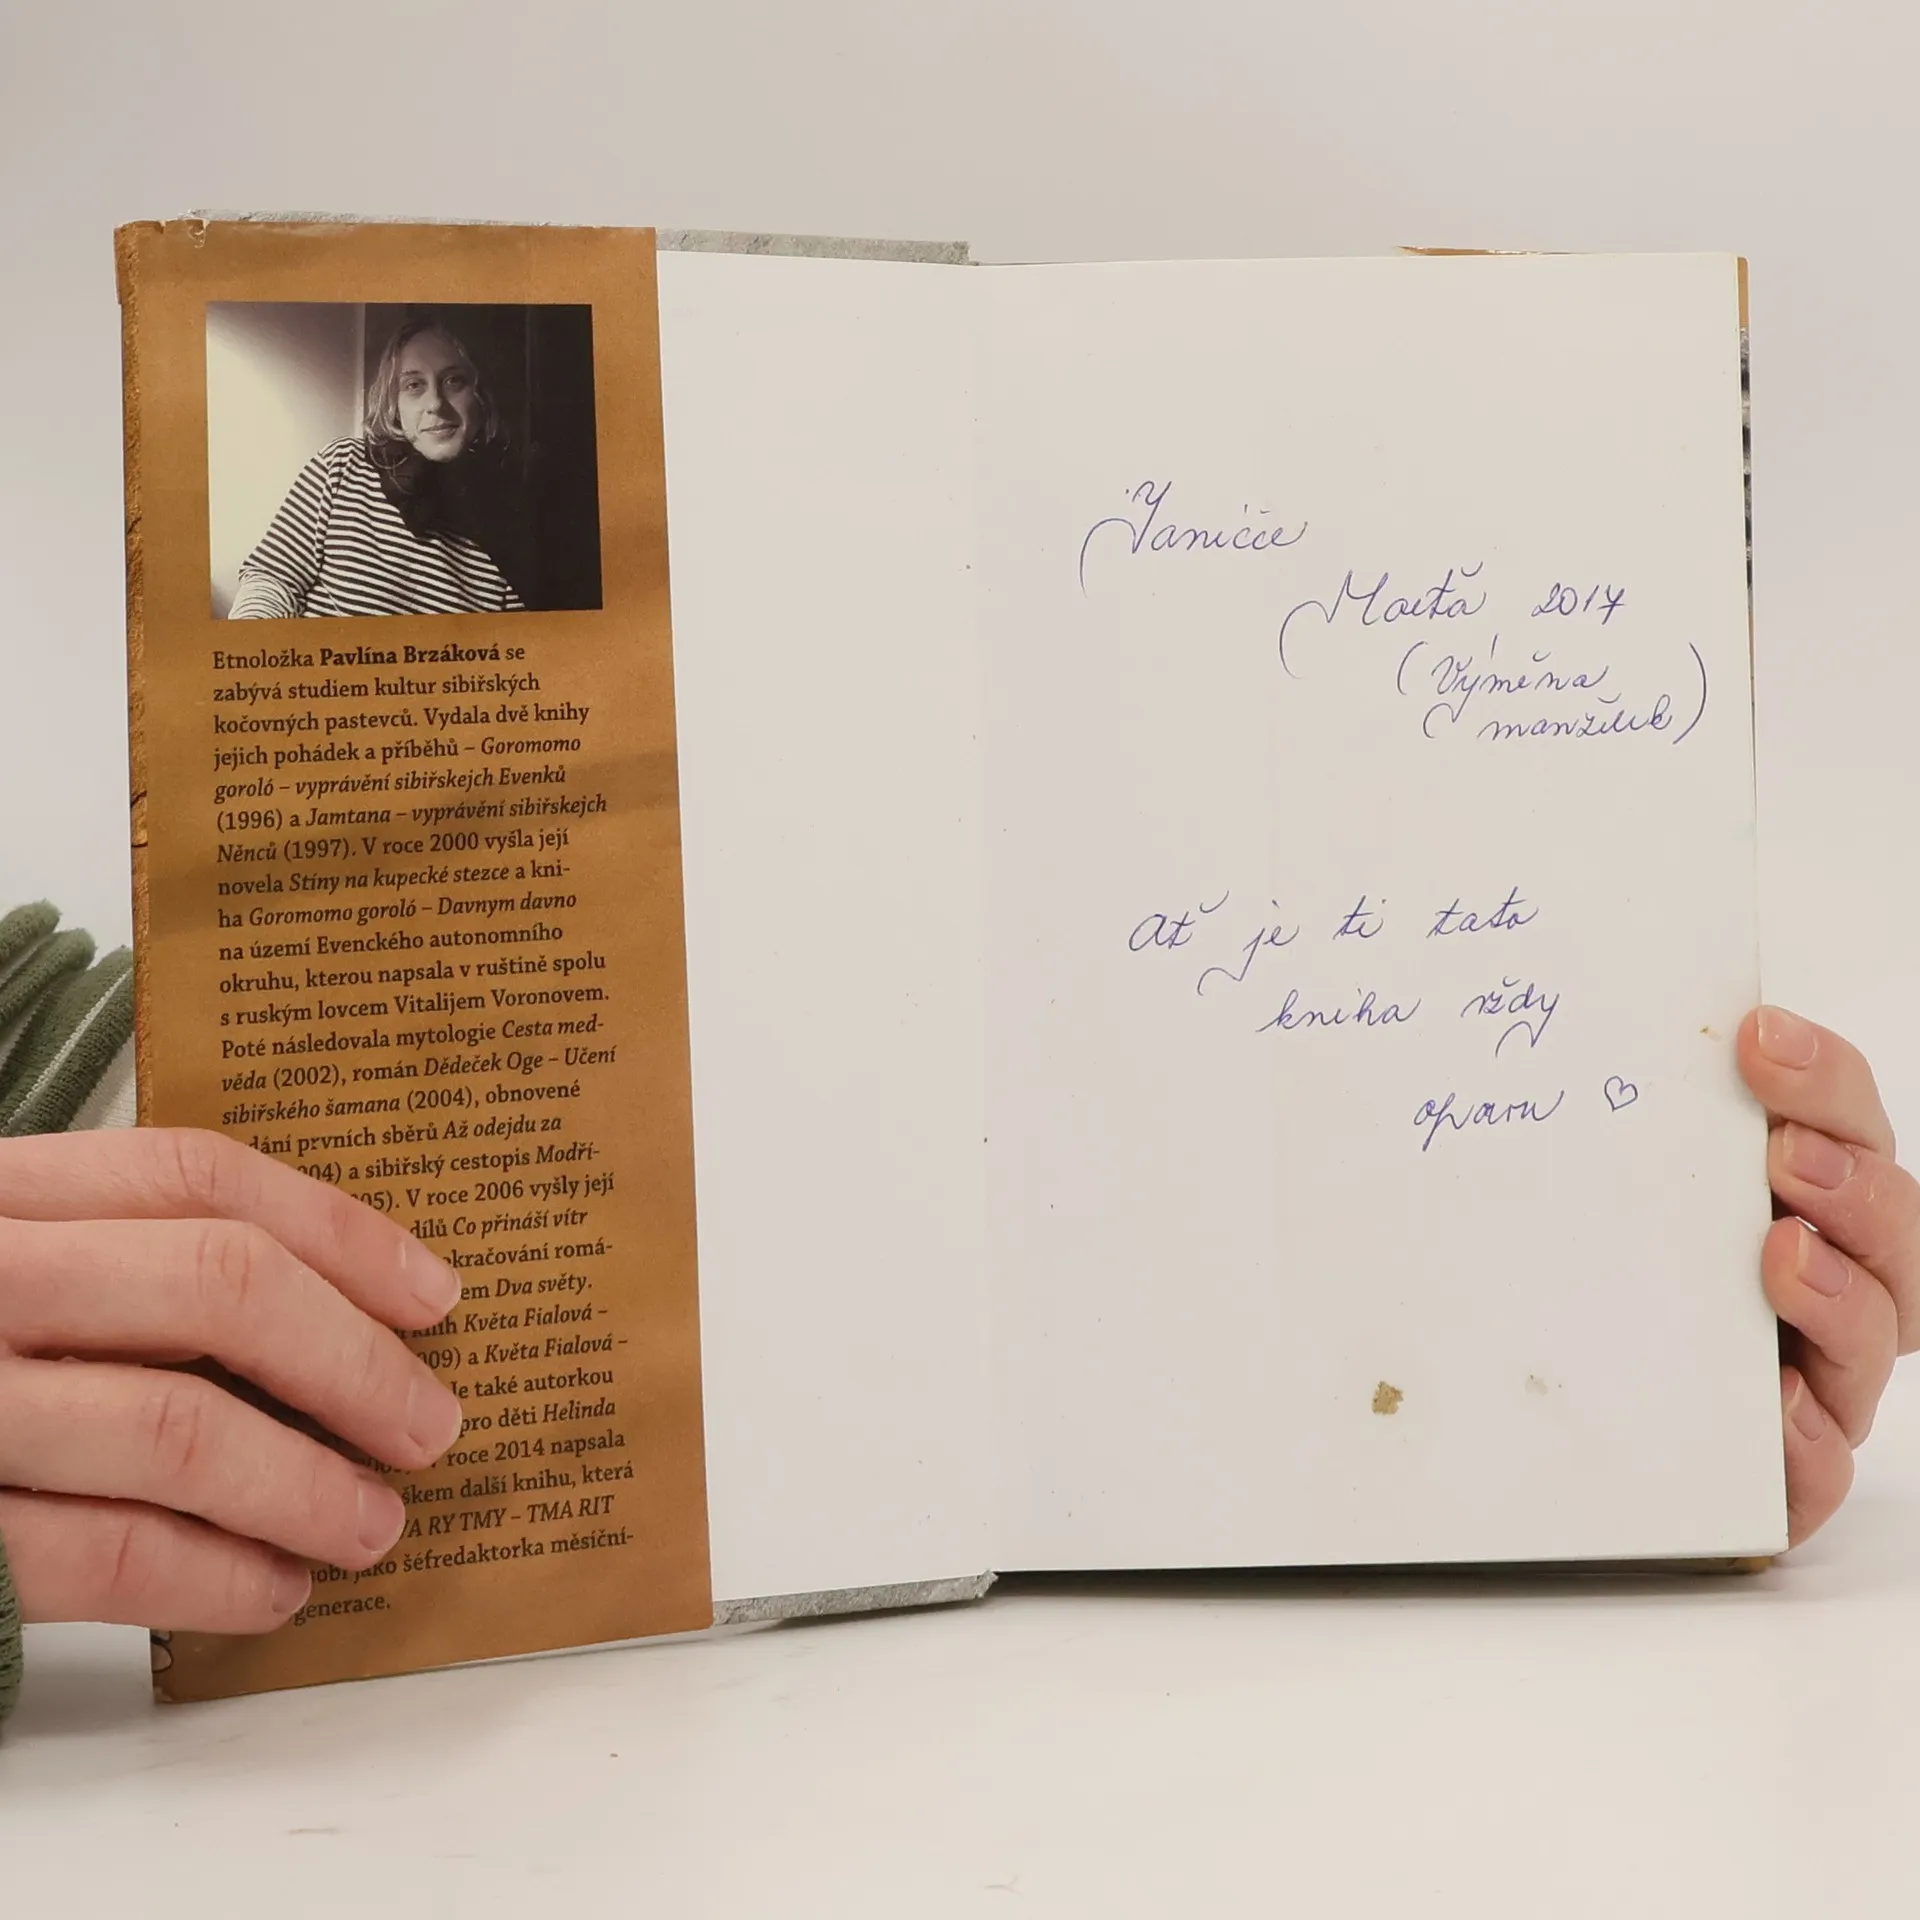 Etnoložka Pavlína Brzáková se
zabývá studiem kultur sibiřských
kočovných pastevců. Vydala dvě knihy
jejich pohádek a příběhů – Goromomo
goroló – vyprávění sibiřskejch Evenků
(1996) a Jamtana – vyprávění sibiřskejch
Něnců (1997). V roce 2000 vyšla její
novela Stíny na kupecké stezce a kni-
ha Goromomo goroló – Davnym davno
na území Evenckého autonomního
okruhu, kterou napsala v ruštině spolu
s ruským lovcem Vitalijem Voronovem.
Poté následovala mytologie Cesta med-
věda (2002), román Dědeček Oge – Učení
sibiřského šamana (2004), obnovené
dání prvních sběrů Až odejdu za
04) a sibiřský cestopis Modří-
05). V roce 2006 vyšly její
dílů Co přináší vítr
okračování romá-
em Dva světy.
knih Květa Fialová –
009) a Květa Fialová –
Je také autorkou
pro děti Helinda
roce 2014 napsala
škem další knihu, která
VA RY TMY – TMA RIT
sobí jako šéfredaktorka měsíční-
generace.
Janičce
Maťa 2017
(Výměna
manželek)
Ať je ti tato
kniha vždy
oporu ♡